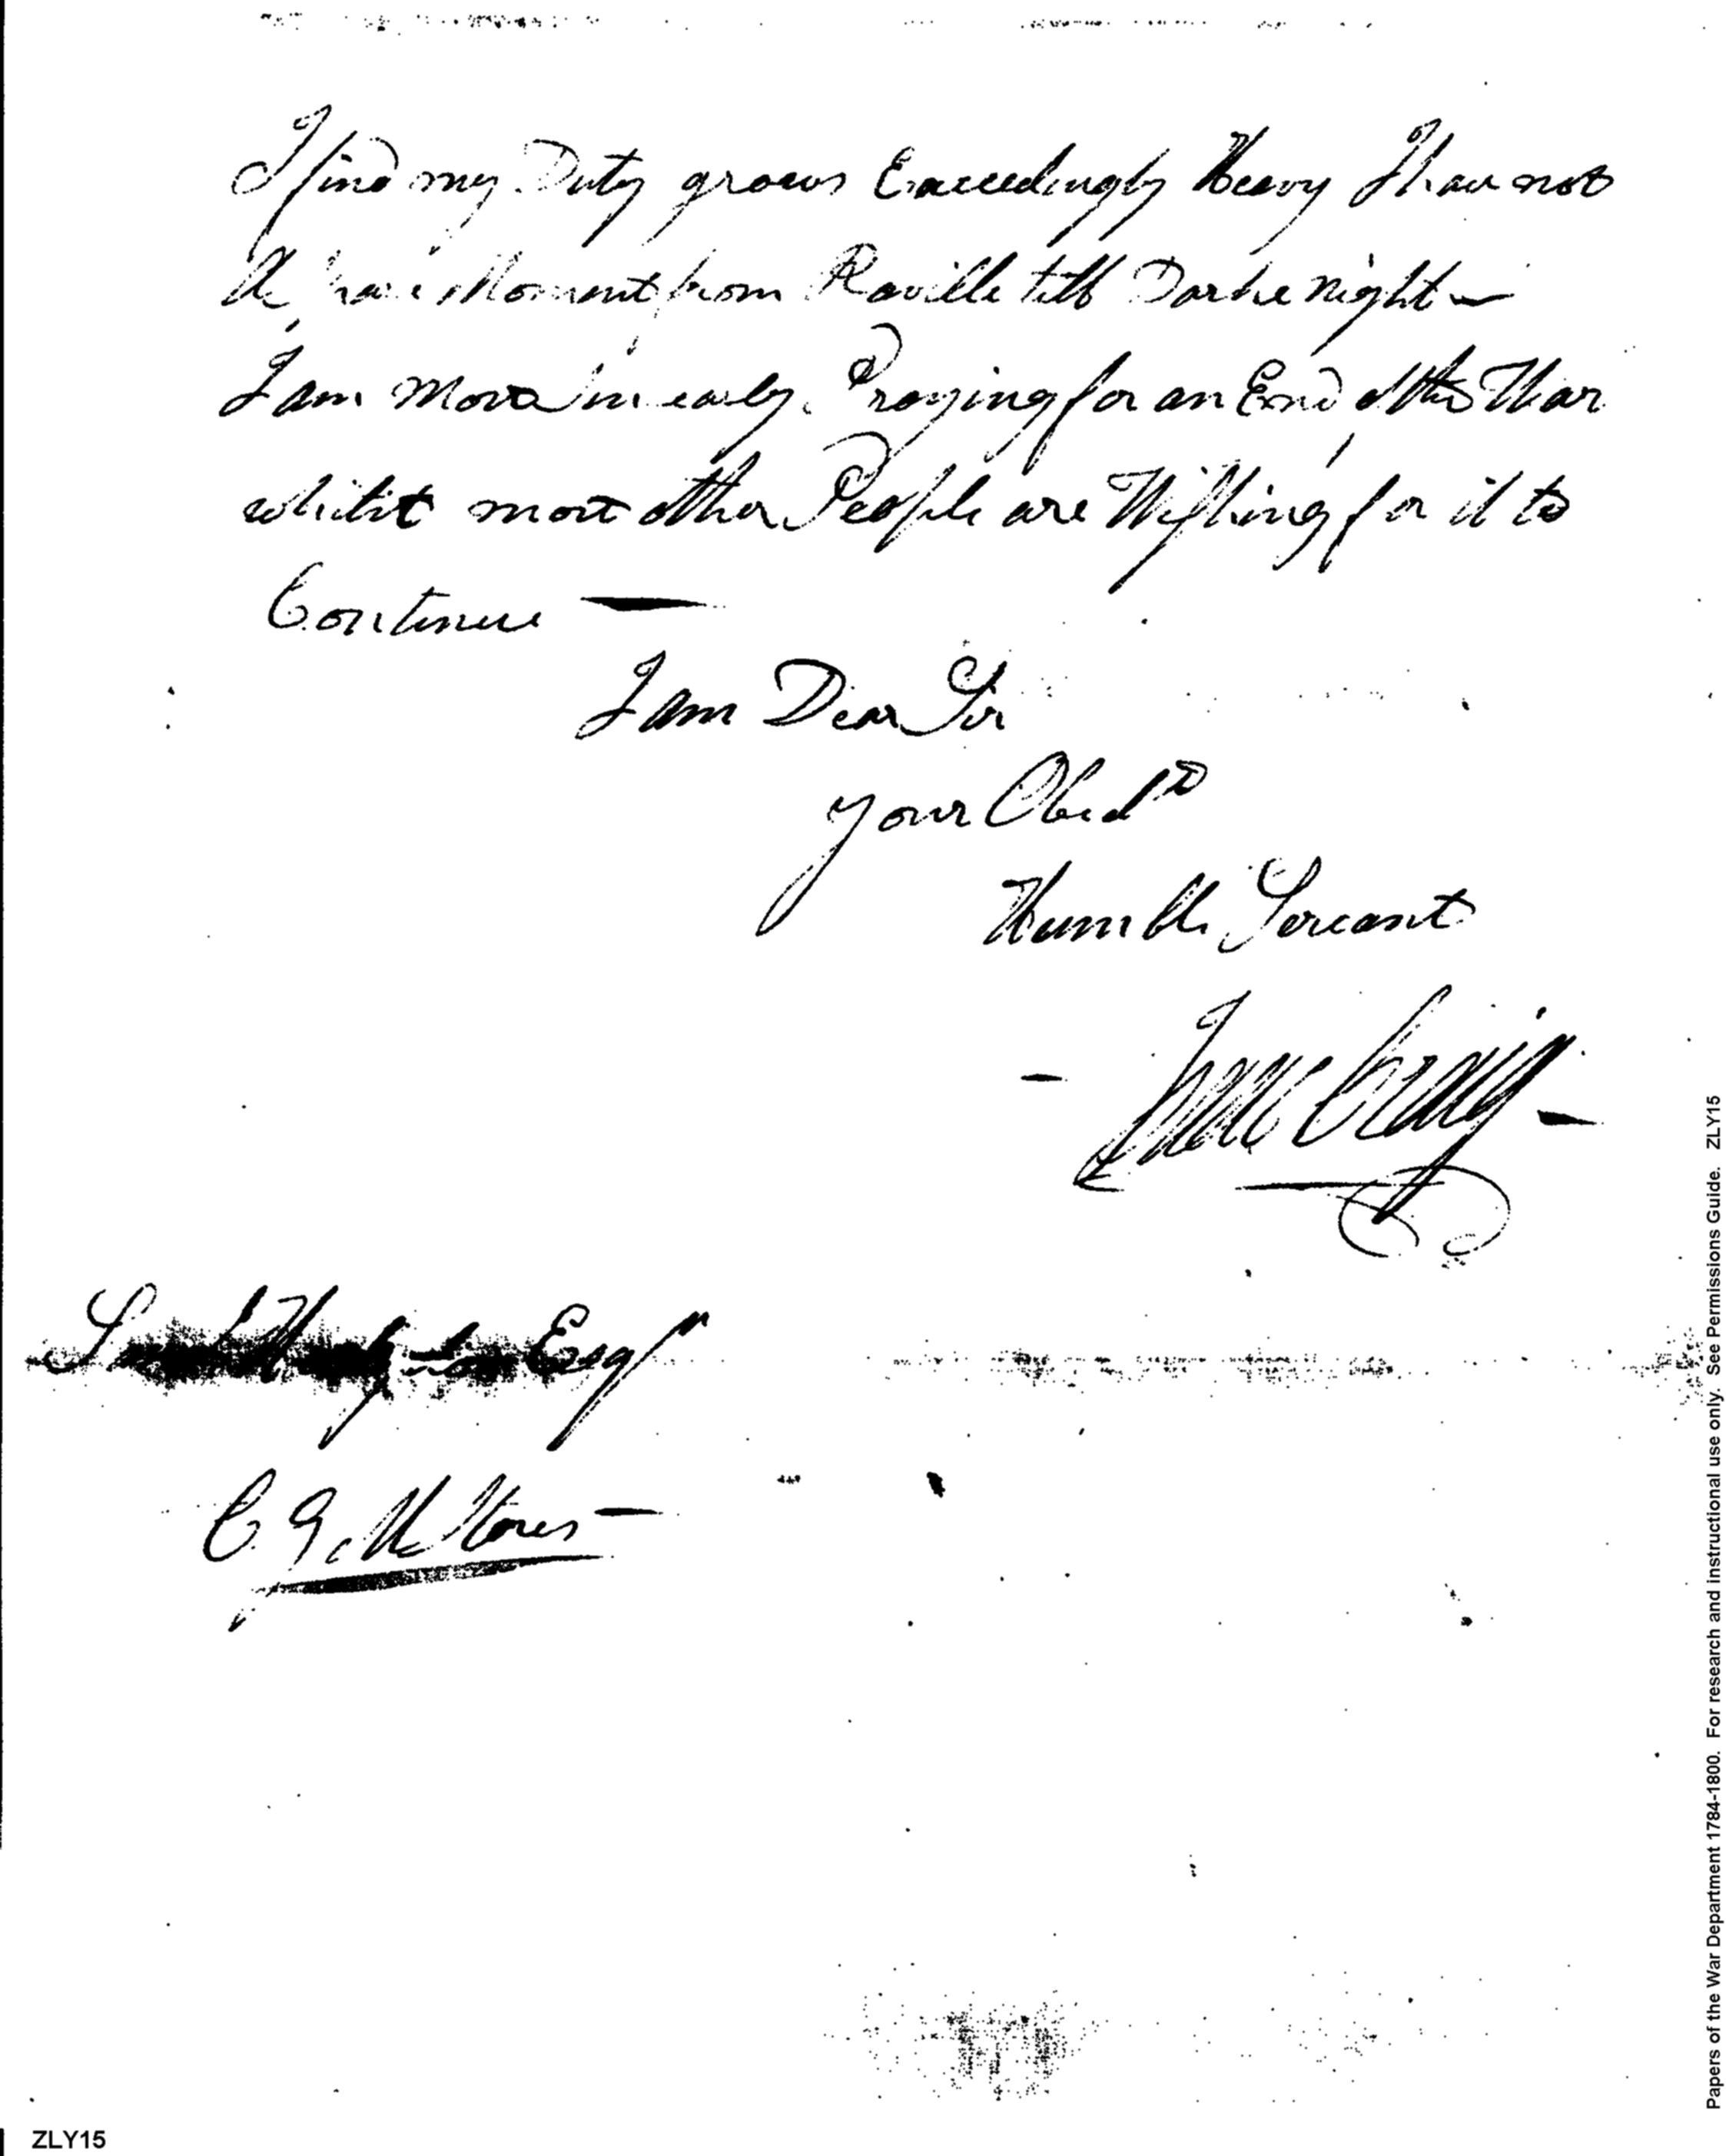 I find my Duty grows Exceedingly Heavy I have not
A Moment from Raville till Darke night —
I am Praying for an End of the War
whilst most other People are Wishing for it to
Continue —
I am Dear Sir
your Obedt
Humble Servant
- Isaac Craig -
Saml Hodgdon Esqr
C. G. M Stores —
Papers of the War Department 1784-1800. For research and instructional use only. See Permissions Guide. ZLY15
ZLY15